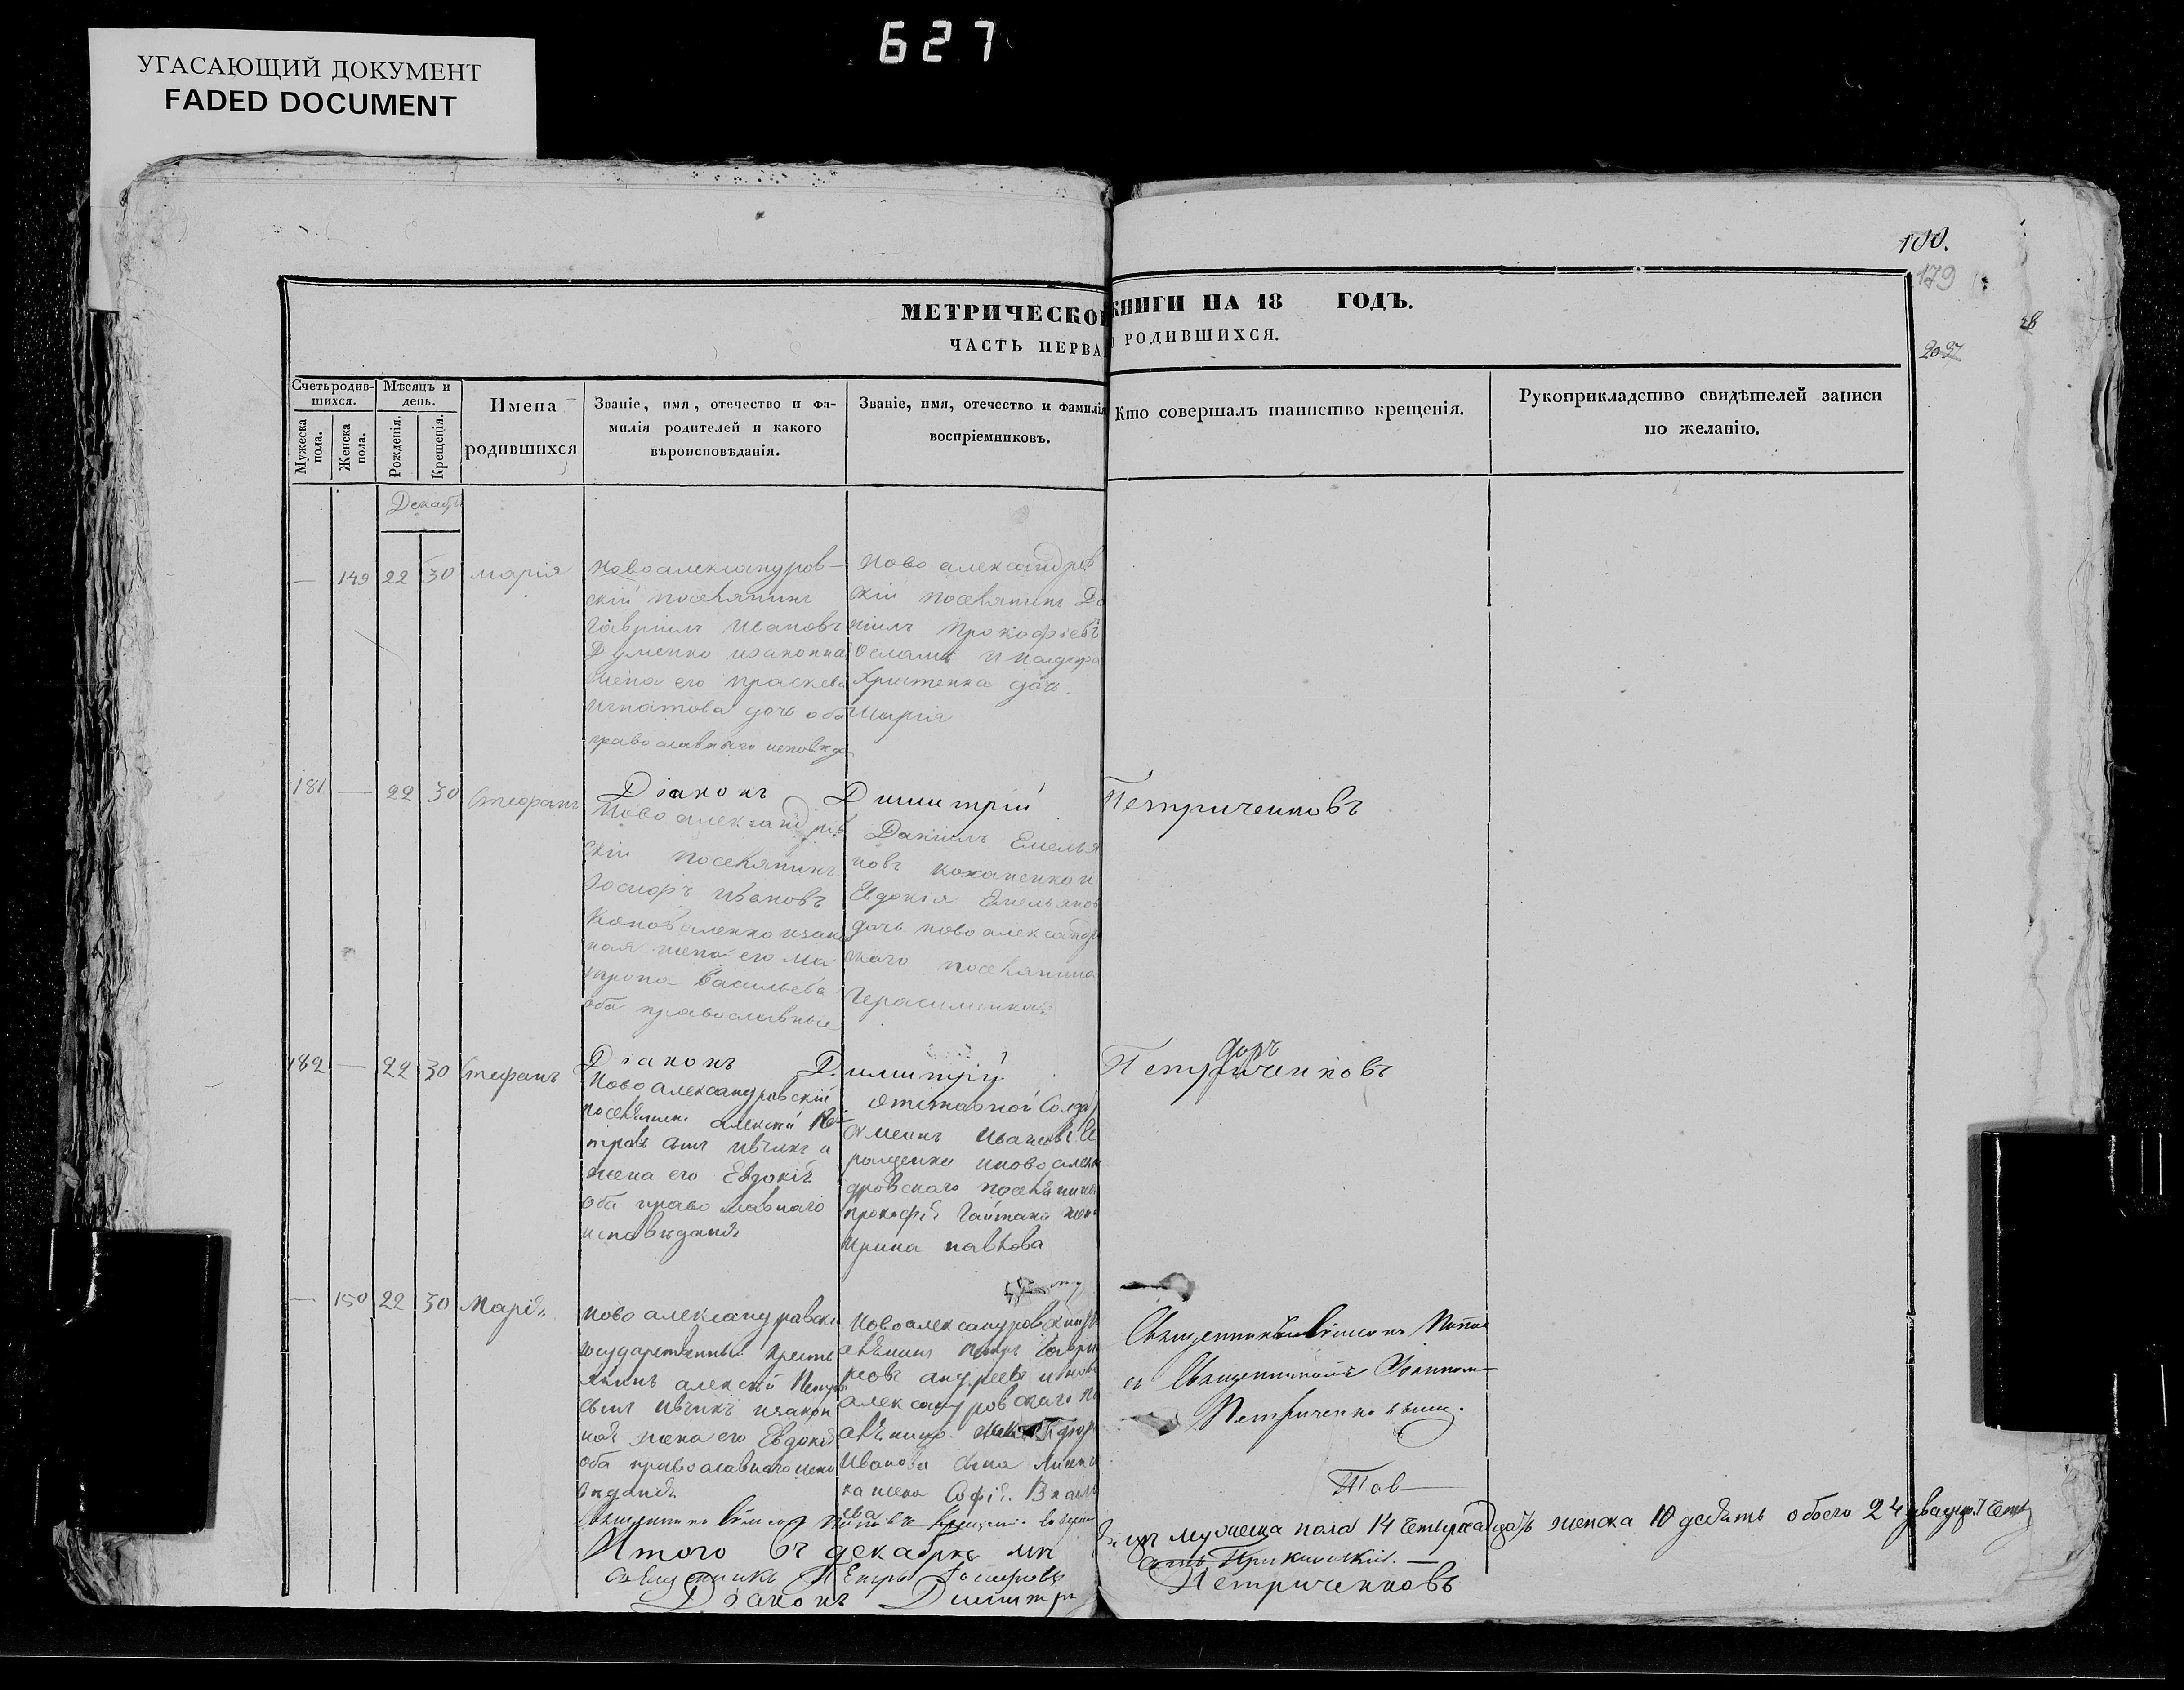 627
УГАСАЮЩИЙ ДОКУМЕНТ
FADED DOCUMENT
100.
179
28
2027
МЕТРИЧЕСКОЙ КНИГИ НА 18 ГОДЪ.
ЧАСТЬ ПЕРВА РОДИВШИХСЯ.
Счетъ родив-
шихся.
Мужеска пола.
Женска пола.
Мѣсяцъ и
день.
Рожденія.
Крещенія.
Имена
родившихся
Званіе, имя, отечество и фа-
милія родителей и какого
вѣроисповѣданія.
Званіе, имя, отечество и фамилія
воспріемниковъ.
Кто совершалъ таинство крещенія.
Рукоприкладство свидѣтелей записи
по желанію.
Декабр
— 149 22 30 марія
Новоалександров-
скій поселянинъ
Гавріилъ Ивановъ
Думенко изаконна
жена его праскева
игнатова дочь оба
православнаго исповѣд
Ново александров
скій поселянинъ Да
ніилъ Прокофіевъ
Христенка доч.
Марія
181 — 22 30 Стефанъ
Діаконъ Димитрій Петриченковъ
Ново александров
скій поселянинъ
Іосифъ Ивановъ
Коноваленко изако
ная жена его Ма
трона васильева
оба православные
Даніилъ Емелья
новъ коханенко и
Евдокія Емельянов
дочь ново александр
скаго поселянина
Герасименка
182 — 22 30 Стефанъ
Діаконъ Димитрій Петриченковъ
Ново александровскій
поселянинъ алексій Пе
тровъ сынъ Ивчикъ и
жена его Евдокія
оба православнаго
исповѣданія
отставной Солда
Иванов
ново алекса
дровскаго поселянина
прокофія Гайтана жена
Ирина павлова
— 150 22 30 Марія
Ново александровскі
государственный кресть
янинъ алексій Петро
сынъ Ивчикъ изакон
ная жена его Евдокія
оба православнаго испо
вѣданія
Новоалександровскій по
селянинъ Петръ Гаври
ловъ андреевъ и ново
александровскаго по
селянина
Иванова сына Лисен
ка жена Софія Васил
ева
Священникъ Симеонъ Попов
съ Священникомъ Іоанном
Петриченковым.
Итого въ декабрѣ мц
мужеска пола 14 четырнадцать женска 10 десять обоего 24 двадцать четы
Священникъ Петръ
Діаконъ Димитрі Петриченковъ